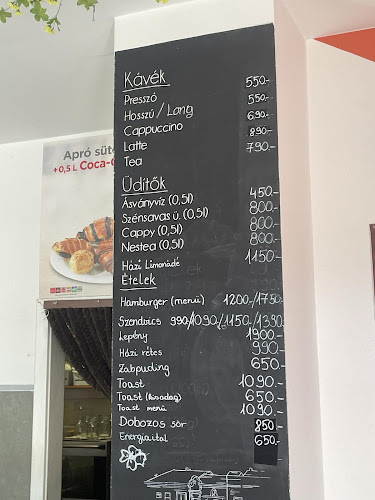 Kávék
Presszó 550.-
Hosszú / Long 550.-
Cappuccino 690.-
Latte 890.-
Tea 790.-
Üdítők
Ásványvíz (0,5l) 450.-
Szénsavas ü. (0,5l) 800.-
Cappy (0,5l) 800.-
Nestea (0,5l) 800.-
Házi Limonádé 1150.-
Ételek
Hamburger (menü) 1200.-/1750.-
Szendvics 990/1090/1150/1390
Lepény 1900.-
Házi rétes 990.-
Zabpuding 650.-
Toast 1090.-
Toast (kisadag) 650.-
Toast menü 1090.-
Dobozos sör 850.-
Energiaital 650.-
Apró süt
+0,5 L Coca-